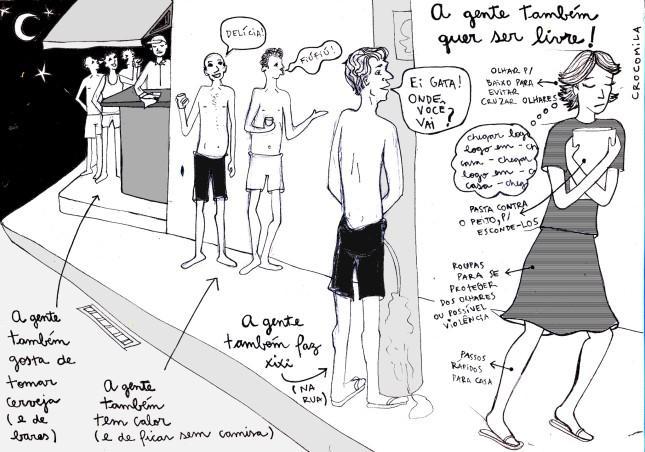 A gente também
quer ser livre!
CROCOMILA
DELÍCIA!
FIUFIÚ!
EI GATA!
ONDE
VOCÊ
VAI ?
OLHAR P/
BAIXO PARA
EVITAR
CRUZAR OLHARES
chegar logo
logo em - ch
casa - chegar
logo em - c
casa - cheg
PASTA CONTRA
O PEITO, P/
ESCONDE-LOS
ROUPAS
PARA SE
PROTEGER
DOS OLHARES
OU POSSÍVEL
VIOLÊNCIA
PASSOS
RÁPIDOS
PARA CASA
A gente
também
gosta de
tomar
cerveja
(e de
bares)
A gente
também
tem calor
(e de ficar sem camisa)
A gente
também faz
xixi
(NA
RUA)